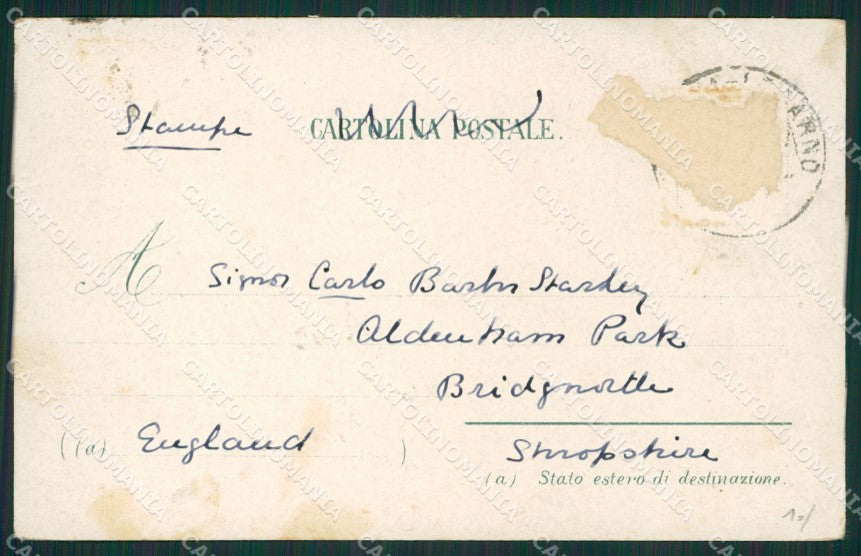 Stampe
CARTOLINA POSTALE.
ARNO
A
Signor Carlo Barbr Starkey
Aldenham Park
Bridgnorth
(a) England )
Shropshire
(a) Stato estero di destinazione.
10/
CARTOLINOMANIA